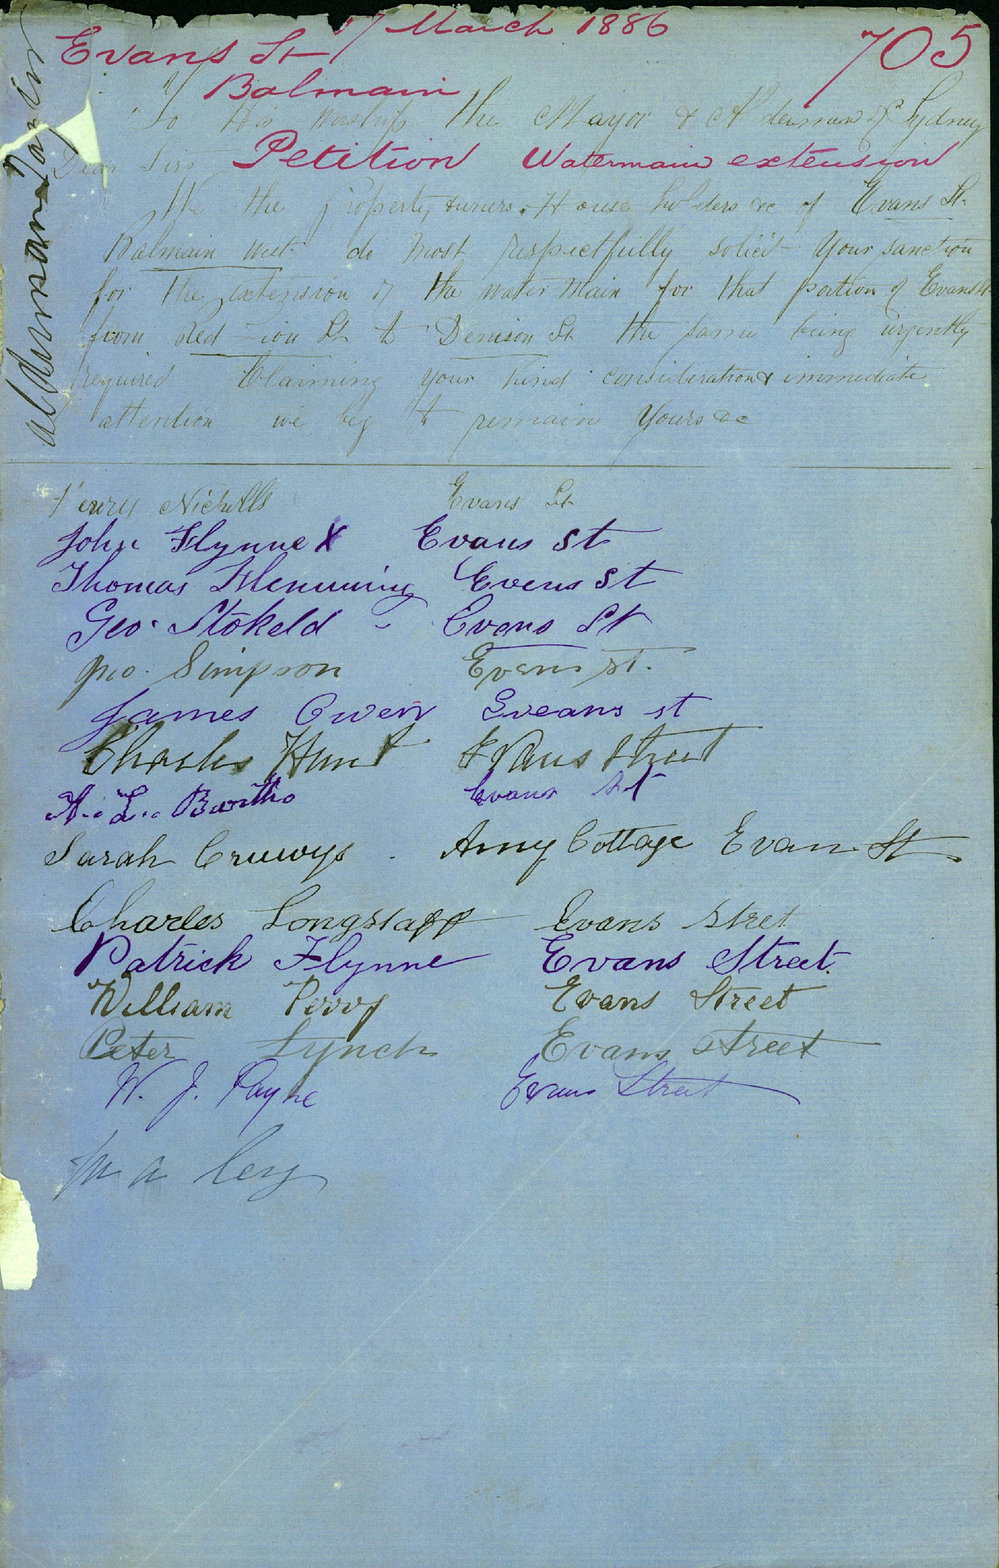 17 March 1886
Evans St
Balmain
705
To His Worship the Mayor & Aldermen of Sydney
Petition Watermain extension
Dear Sirs
We the Property owners, House holders &c of Evans St.
Balmain West do most respectfully solicit your sanction
for the extension of the water main for that portion of Evans St
from Red Lion St to Denison St the same being urgently
required Claiming your kind consideration & immediate
attention we beg to remain Yours &c
Henry Nicholls Evans St
John Flynne X Evans St
Thomas Evens St
Geo. Stokeld - Evans St
Geo. Simpson Evans St.
James Owen Eveans st
Charles Hunt Evans Street
A. L. Bartho Evans St
Sarah Cruwys. Amy Cottage Evans St
Charles Longstaff Evans Stret
Patrick Flynne Evans Street.
William Perry Evans Street
Peter Lynch Evans Street
W. J. Payne Evans Street
Alderman